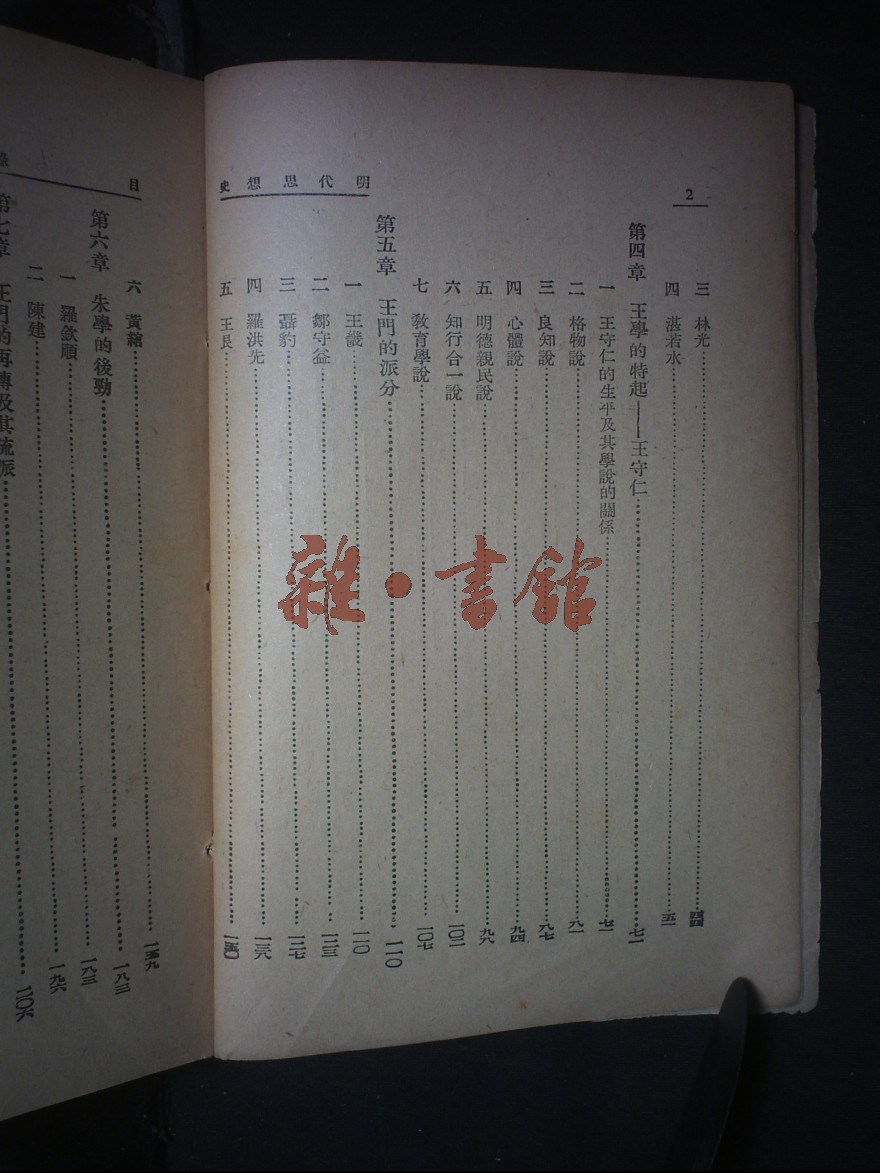 2
明代思想史
三 林光 四四
四 湛若水 五一
第四章 王學的特起——王守仁 七一
一 王守仁的生平及其學說的關係 七一
二 格物說 八一
三 良知說 八七
四 心體說 九四
五 明德親民說 九八
六 知行合一說 一〇二
七 教育學說 一〇七
第五章 王門的派分 一一〇
一 王畿 一一〇
二 鄒守益 一二三
三 聶豹 一二七
四 羅洪先 一三八
五 王艮 一五〇
目
六 黃綰 一五九
第六章 朱學的後勁 一八三
一 羅欽順 一八三
二 陳建 一九六
第七章 王門的再傳及其流派 二〇六
雜·書館